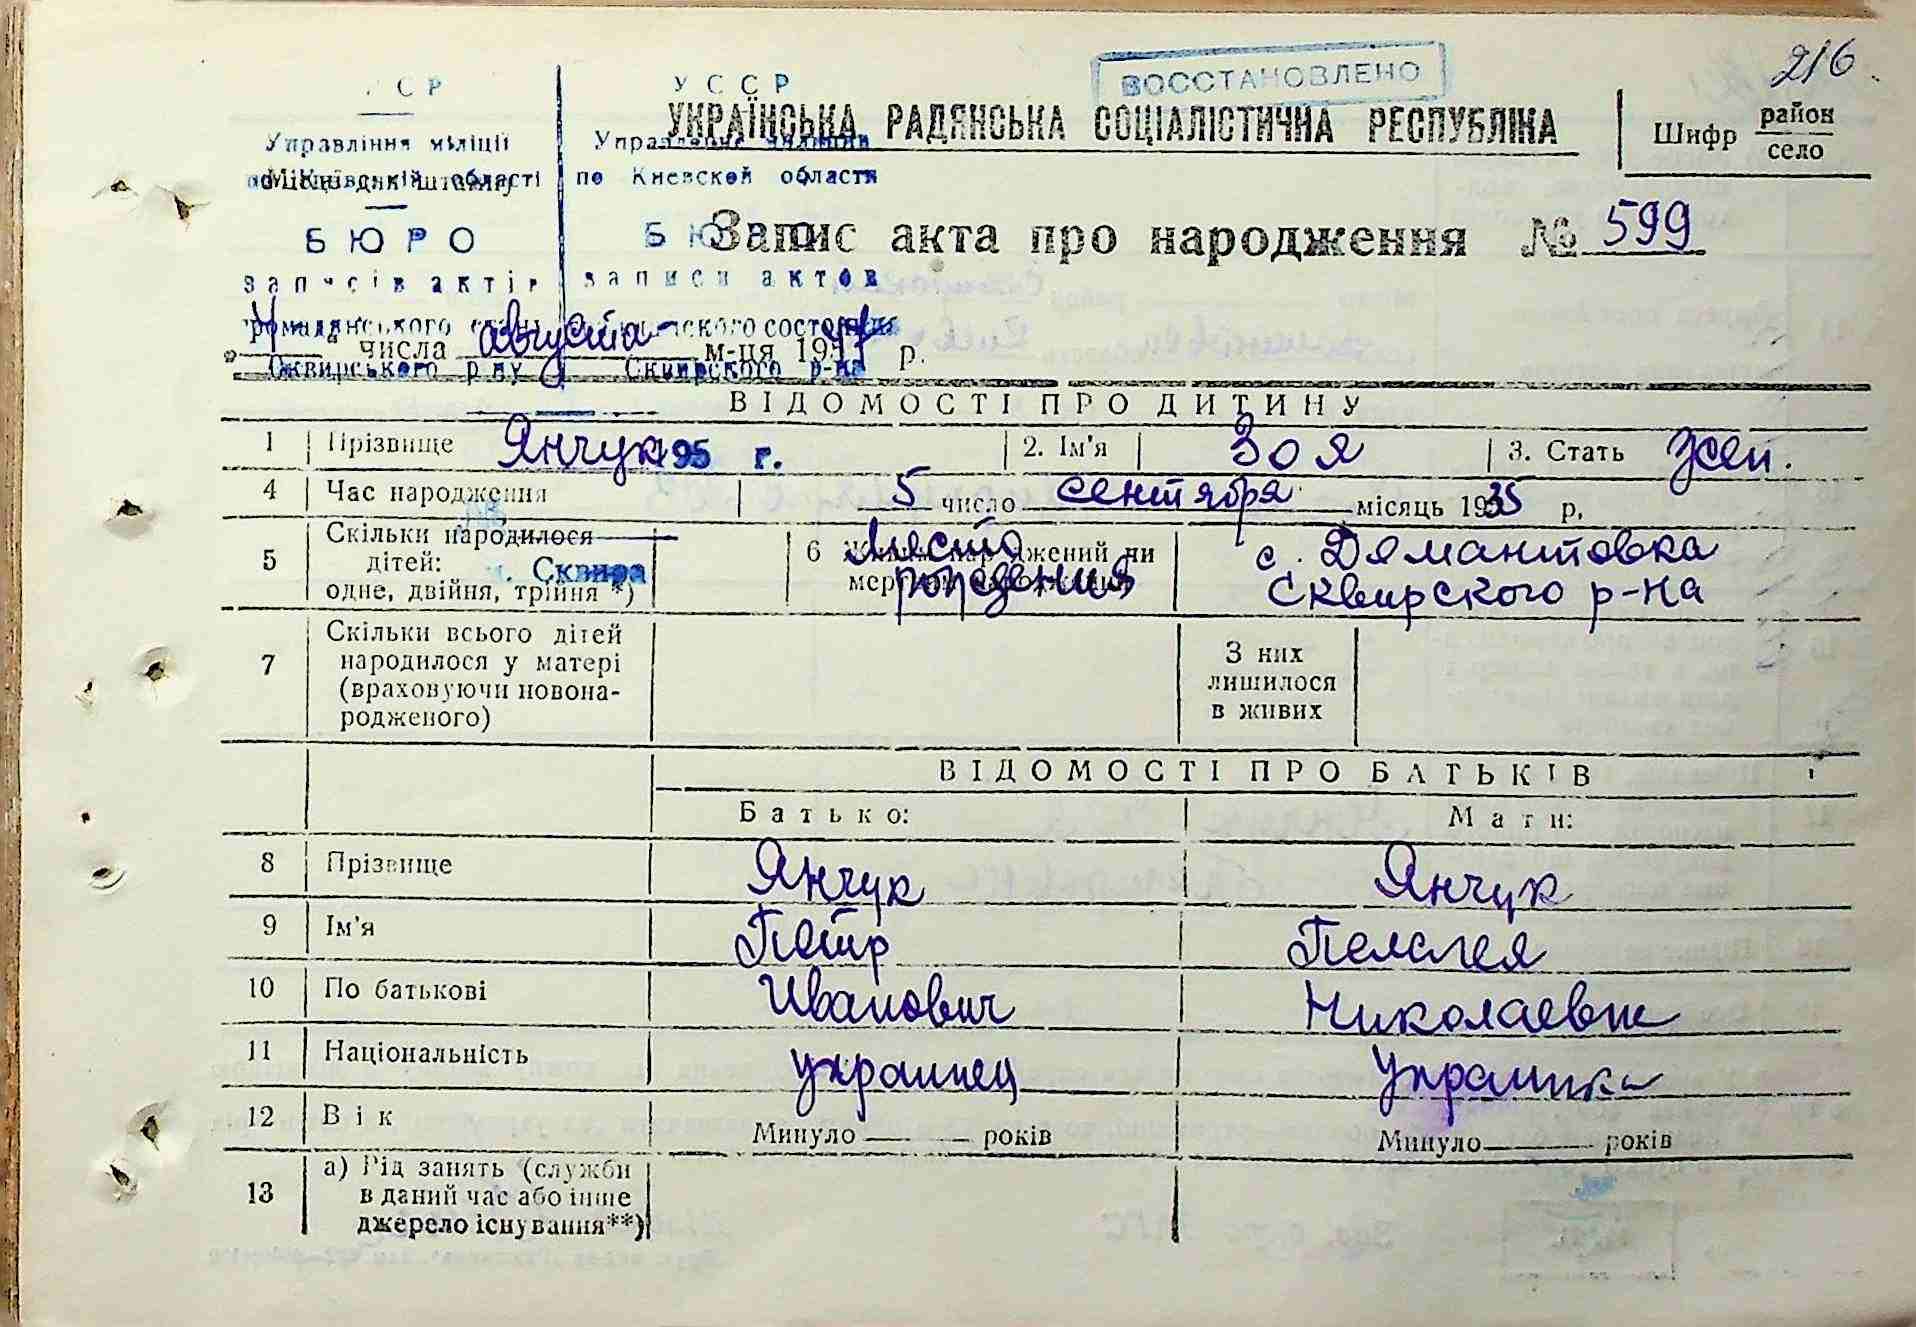 216
ВОССТАНОВЛЕНО
УССР
УКРАЇНСЬКА РАДЯНСЬКА СОЦІАЛІСТИЧНА РЕСПУБЛІКА
Шифр район
село
Управління міліції
по Київській області
БЮРО
записів актів
громадянського стану
Сквирського р-ну
Управление милиции
по Киевской области
БЮРО
записи актов
гражданского состояния
Сквирского р-на
195 г.
м. Сквира
Запис акта про народження № 599
числа августа м-ця 19 р.
ВІДОМОСТІ ПРО ДИТИНУ
1 Прізвище Янчук 2. Ім'я Зоя 3. Стать жен.
4 Час народження 5 число сентября місяць 1935 р.
5 Скільки народилося
дітей:
одне, двійня, трійня *)
6 Живим народжений чи
мертвим народжений
Место
рождения
с. Дямантовка
Сквирского р-на
7 Скільки всього дітей
народилося у матері
(враховуючи новона-
родженого)
З них
лишилося
в живих
ВІДОМОСТІ ПРО БАТЬКІВ
Батько: Мати:
8 Прізвище Янчук Янчук
9 Ім'я Петр Пелагея
10 По батькові Иванович Николаевна
11 Національність украинец Украинка
12 Вік Минуло — — років Минуло — років
13 а) Рід занять (служби
в даний час або інше
джерело існування**)